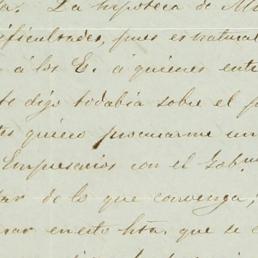 a. La hipoteca de M
ificultades, pues es natural
á los E. á quienes ent
te digo todabía sobre el p
quiero procurarme un
Empresarios con el Gobno
ar de lo que convenga,
rar en esto hta. que se